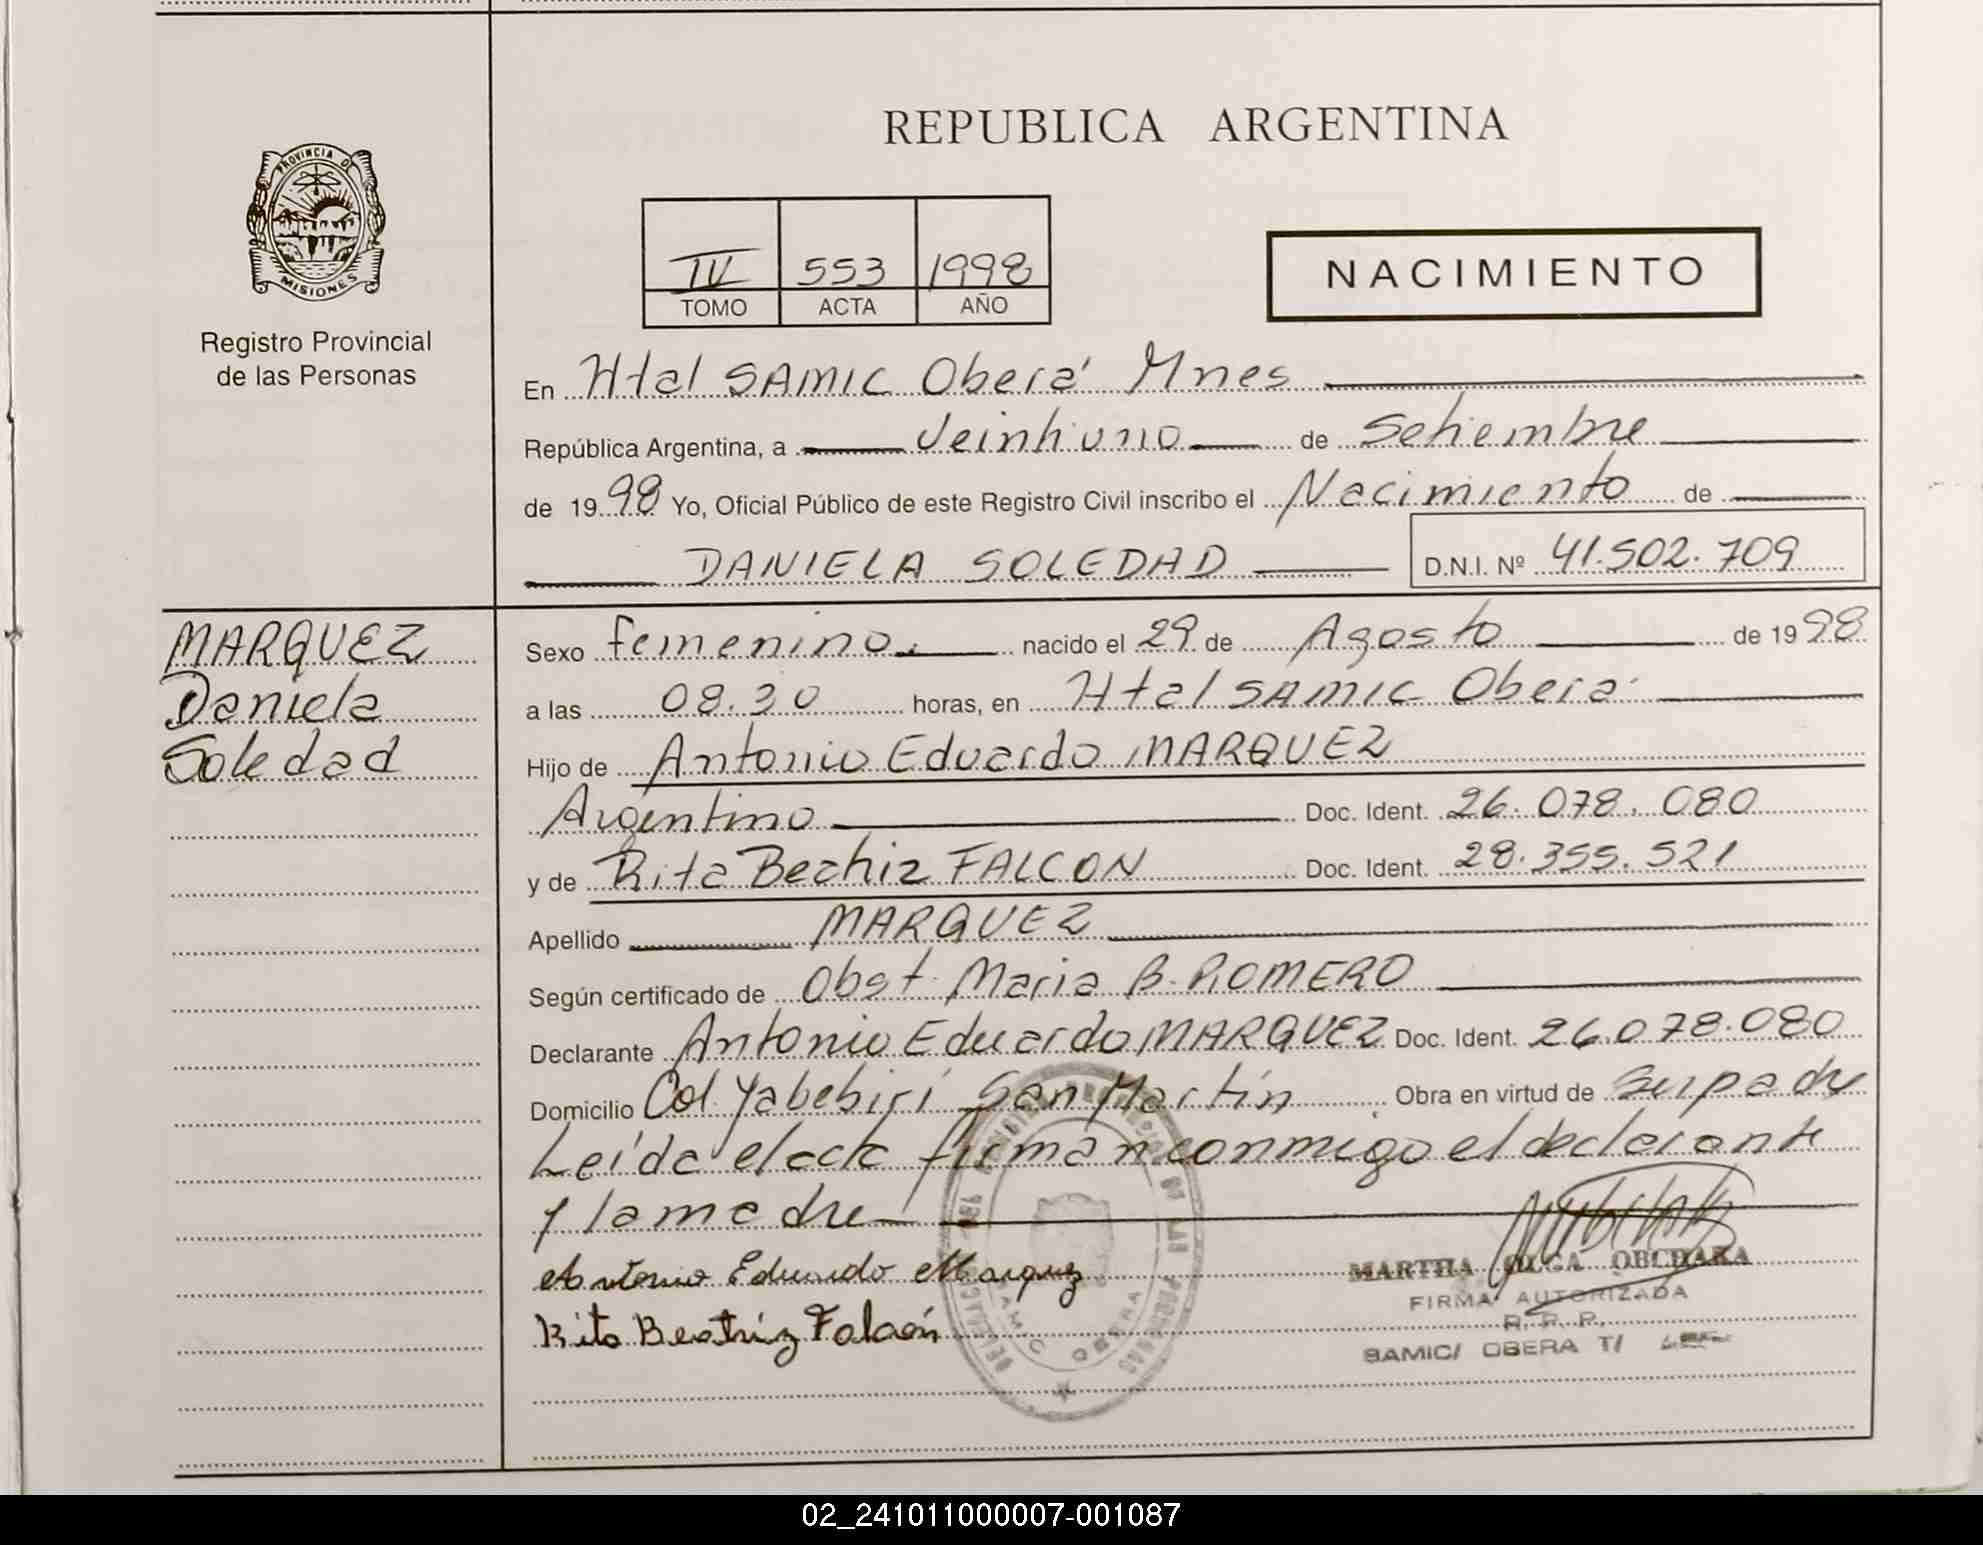 REPUBLICA ARGENTINA
PROVINCIA DE
MISIONES
Registro Provincial
de las Personas
IV 553 1998
TOMO ACTA AÑO
NACIMIENTO
En Htal SAMIC Oberá Mnes
República Argentina, a Veintiuno de Setiembre
de 1998 Yo, Oficial Público de este Registro Civil inscribo el Nacimiento de
DANIELA SOLEDAD D.N.I. Nº 41.502.709
MARQUEZ
Daniela
Soledad
Sexo femenino. nacido el 29 de Agosto de 1998
a las 08.30 horas, en Htal SAMIC Oberá
Hijo de Antonio Eduardo MARQUEZ
Argentino Doc. Ident. 26.078.080
y de Rita Beatriz FALCON Doc. Ident. 28.355.521
Apellido MARQUEZ
Según certificado de Obst. Maria B. ROMERO
Declarante Antonio Eduardo MARQUEZ Doc. Ident. 26.078.080
Domicilio Col. Yabebirí San Martín Obra en virtud de Ser padre
Leída el acta firman conmigo el declarante
y la madre
Antonio Eduardo Marquez
Rita Beatriz Falcón
MARTHA OLGA OBCHAKA
FIRMA AUTORIZADA
R. P. P.
SAMIC/ OBERA T/
02_241011000007-001087